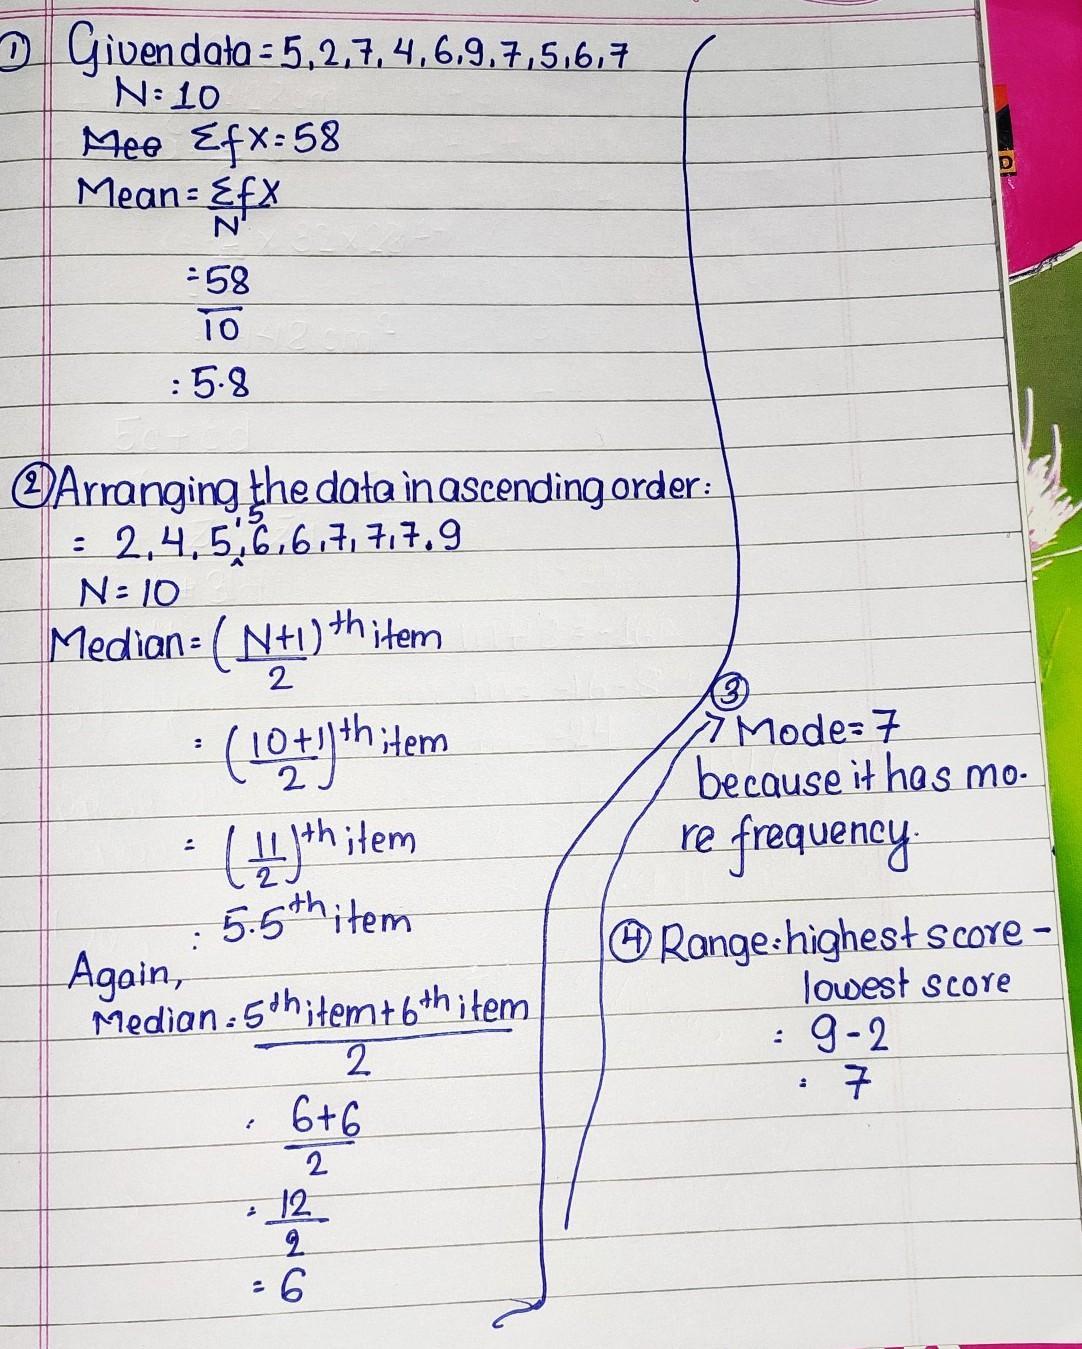 ① Given data = 5, 2, 7, 4, 6, 9, 7, 5, 6, 7
N = 10
Mee Σfx = 58
Mean = Σfx
N
= 58
10
: 5.8
② Arranging the data in ascending order:
= 2, 4, 5, 5, 6, 6, 7, 7, 7, 9
N = 10
Median = (N+1)th item
2
= (10+1)th item
2
= (11)th item
2
: 5.5th item
Again,
Median = 5th item + 6th item
2
= 6+6
2
= 12
2
= 6
③
Mode = 7
because it has mo-
re frequency.
④ Range = highest score -
lowest score
= 9 - 2
= 7